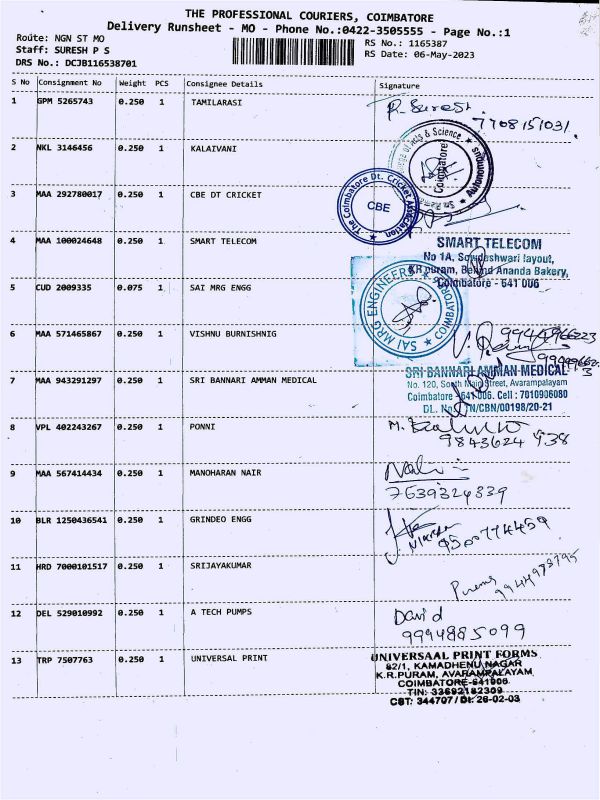 THE PROFESSIONAL COURIERS, COIMBATORE
Delivery Runsheet - MO - Phone No.:0422-3505555 - Page No.:1
Route: NGN ST MO
RS No.: 1165387
Staff: SURESH P S
RS Date: 06-May-2023
DRS No.: DCJB116538701
S No Consignment No Weight PCS Consignee Details Signature
1 GPM 5265743 0.250 1 TAMILARASI
P. Suresh.
7708151031.
2 NKL 3146456 0.250 1 KALAIVANI
Arts & Science
Autonomous
Coimbatore
3 MAA 292780017 0.250 1 CBE DT CRICKET
The Coimbatore Dt. Cricket Association
CBE
4 MAA 100024648 0.250 1 SMART TELECOM
SMART TELECOM
No 1A, Sowdeshwari layout,
KR puram, Behind Ananda Bakery,
Coimbatore - 641 006
5 CUD 2009335 0.075 1 SAI MRG ENGG
SAI MRG ENGINEERS
COIMBATORE
6 MAA 571465867 0.250 1 VISHNU BURNISHNIG
7 MAA 943291297 0.250 1 SRI BANNARI AMMAN MEDICAL
SRI BANNARI AMMAN MEDICAL
No. 120, South Main Street, Avarampalayam
Coimbatore - 641 006. Cell : 7010906080
DL. No. TN/CBN/00198/20-21
8 VPL 402243267 0.250 1 PONNI
M.
9843624438
9 MAA 567414434 0.250 1 MANOHARAN NAIR
7639324339
10 BLR 1250436541 0.250 1 GRINDEO ENGG
9500774459
11 HRD 7000101517 0.250 1 SRIJAYAKUMAR
12 DEL 529010992 0.250 1 A TECH PUMPS
David
9994885099
13 TRP 7507763 0.250 1 UNIVERSAL PRINT
UNIVERSAAL PRINT FORMS
82/1, KAMADHENU NAGAR
K.R.PURAM, AVARAMPALAYAM,
COIMBATORE-641006
TIN: 33692182309
CST: 344707 / Dt: 26-02-03